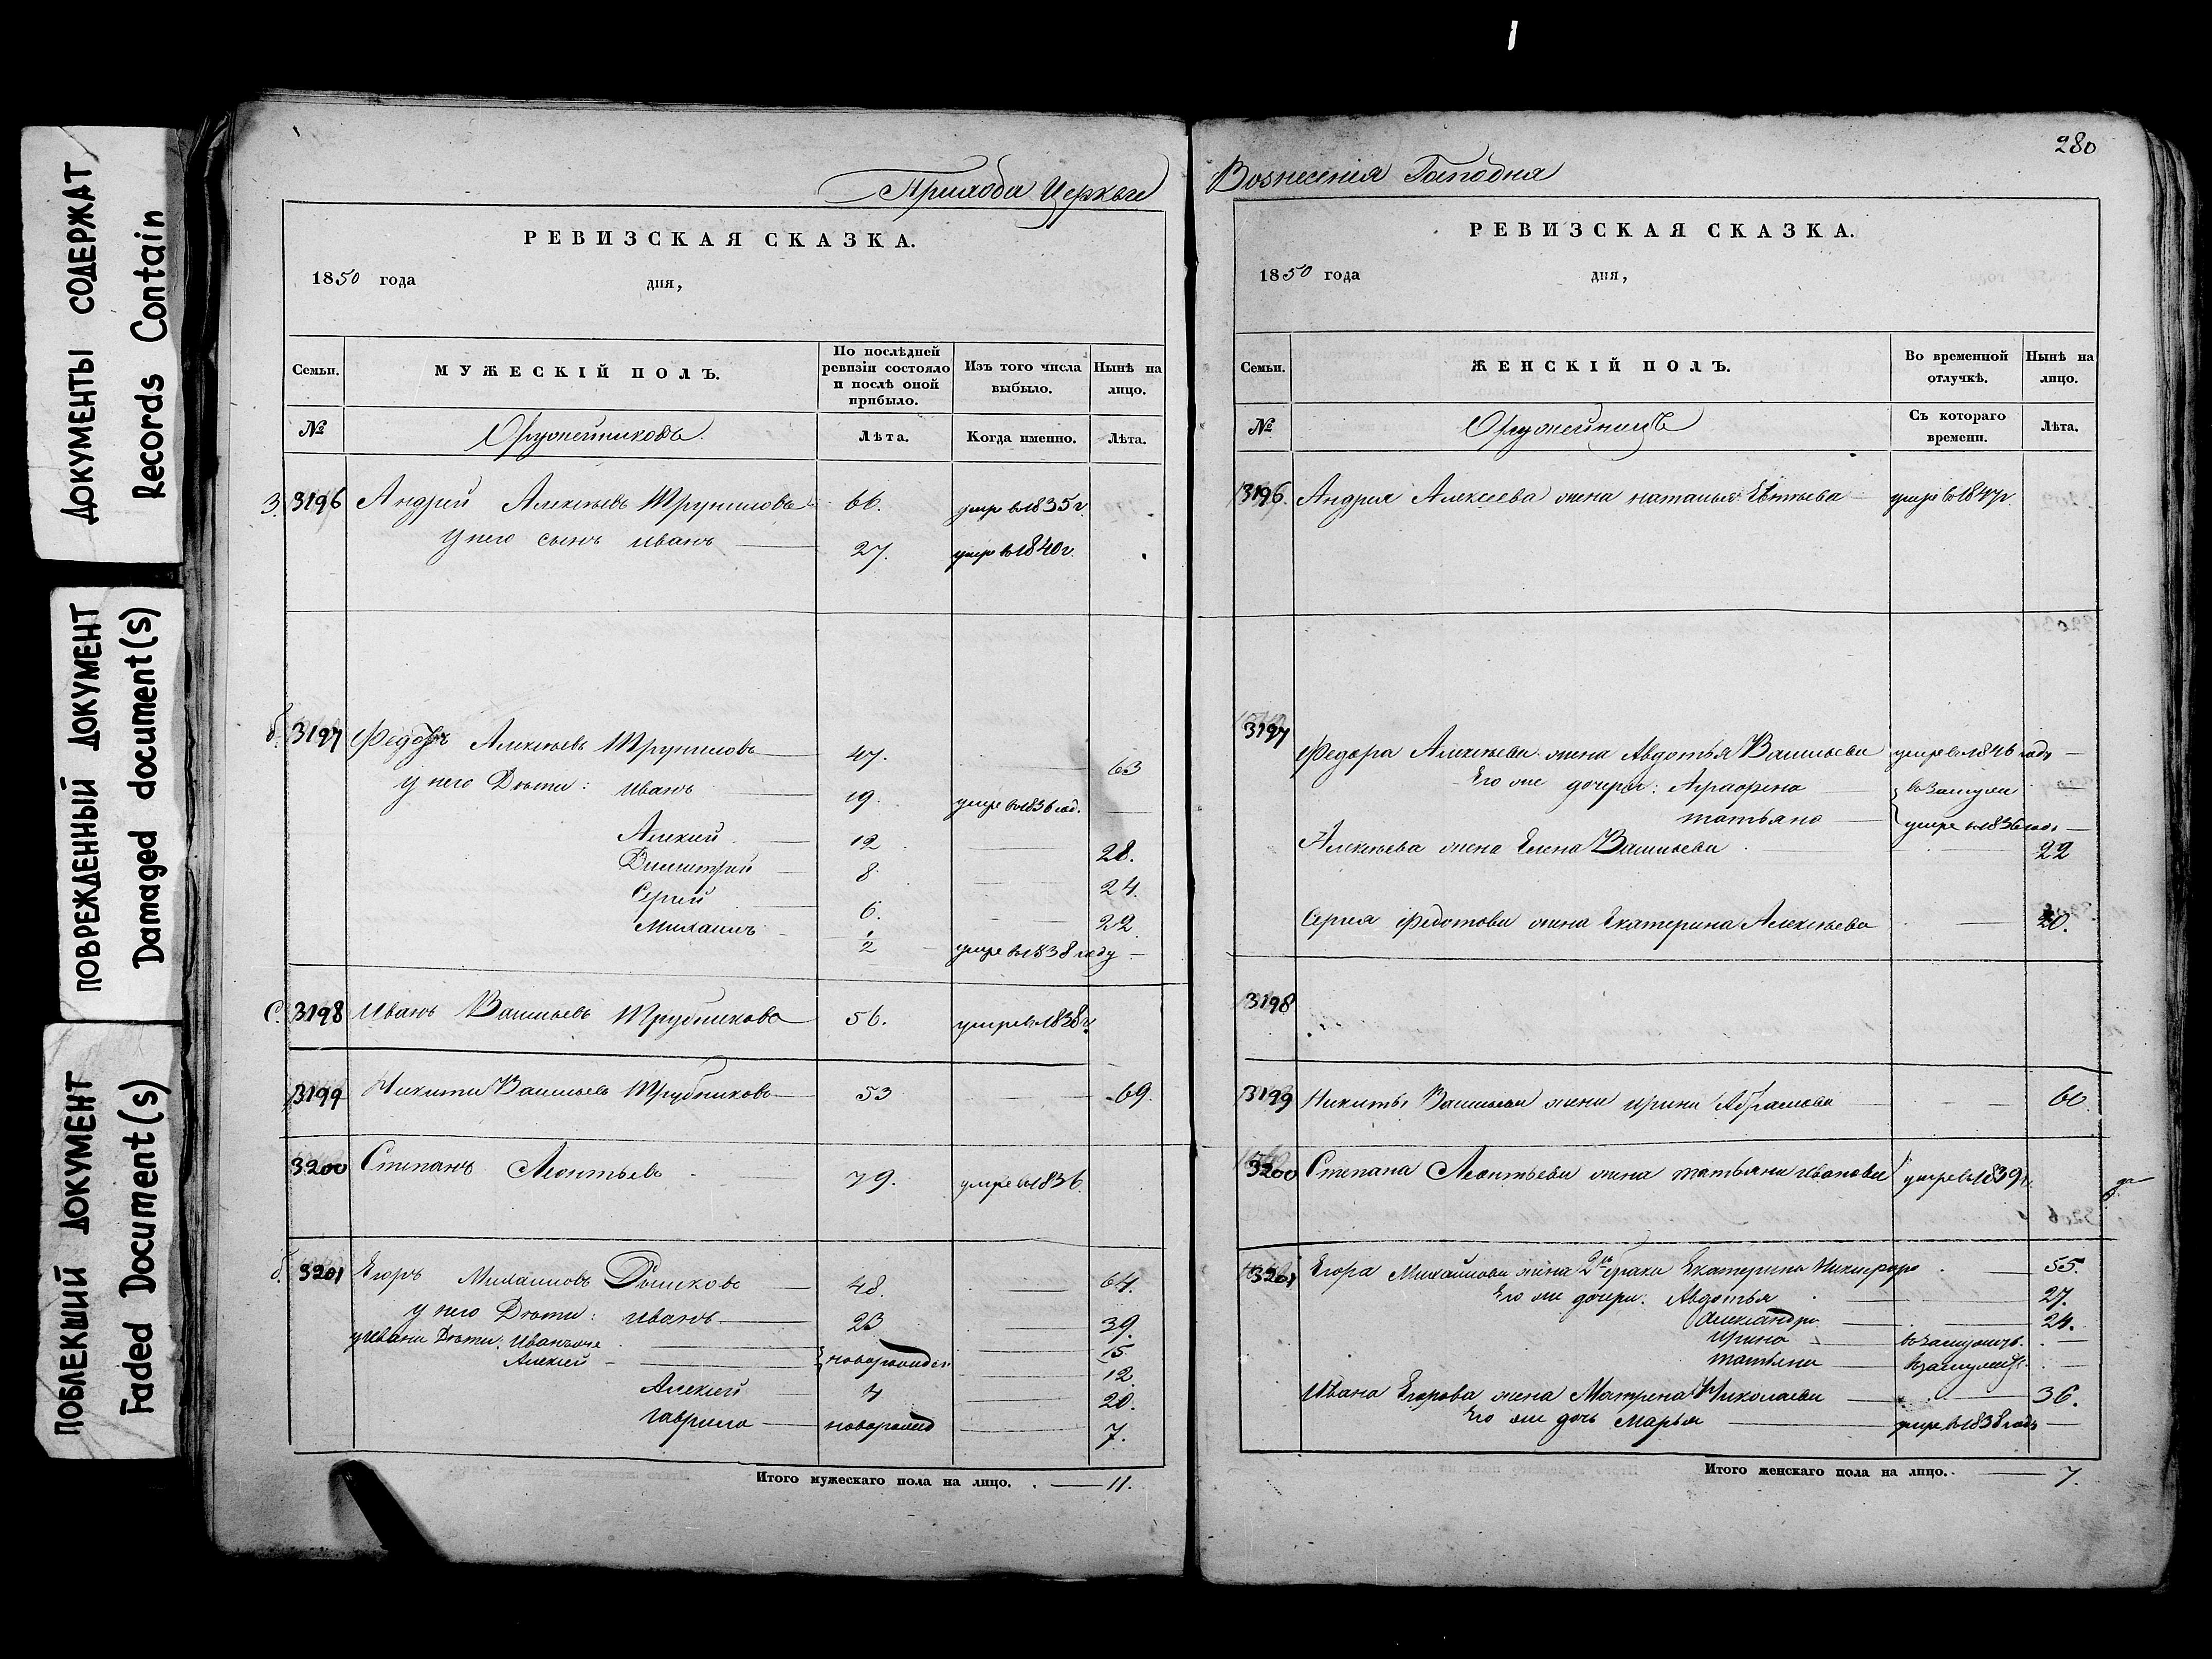 ДОКУМЕНТЫ СОДЕРЖАТ
Records Contain
ПОВРЕЖДЕННЫЙ ДОКУМЕНТ
Damaged document(s)
ПОБЛЕКШИЙ ДОКУМЕНТ
Faded Document(s)
Прихода Церкви
РЕВИЗСКАЯ СКАЗКА.
1850 года дня,
Семьи. МУЖЕСКІЙ ПОЛЪ. По послѣдней ревизіи состояло и послѣ оной прибыло. Изъ того числа выбыло. Нынѣ на лицо.
№ Оружейниковъ. Лѣта. Когда именно. Лѣта.
3. 3196 Андрей Алексѣевъ 66. умре въ 1835 г.
у него сынъ Иванъ 27. умр въ 1840 г.
3197 Федоръ Алексѣевъ 47. 63
у него Дѣти: Иванъ 19. умре въ 1836 год.
Алексѣй 12 28.
Димитрій 8. 24.
Сергѣй 6. 22.
Михаилъ 1/2 умре въ 1838 году
С. 3198 Иванъ Васильевъ Трубниковъ 56. умре въ 1838 г.
3199 Никита Васильевъ Трубниковъ 53 69.
3200 Степанъ Леонтьевъ 79. умре въ 1836.
3201 Егоръ Михаиловъ 48. 64.
у него Дѣти: Иванъ 23 39.
у Ивана Дѣти: Иванъ же 15
Алексѣй новорожден 12
Алексѣй 4 20.
Гаврило новорожд 7.
Итого мужескаго пола на лицо. 11.
280
Вознесенія Господня
РЕВИЗСКАЯ СКАЗКА.
1850 года дня,
Семьи. ЖЕНСКІЙ ПОЛЪ. Во временной отлучкѣ. Нынѣ на лицо.
№ Оружейницъ Съ котораго времени. Лѣта.
3196. Андрея Алексеева жена Наталья умре въ 1847 г.
3197 Федора Алексѣева жена Авдотья Васильева умре въ 1846 годъ
Его же дочери: Аграфена въ замуж
Татьяна умре въ 1836 год.
Алексѣева жена Елена Васильева 22
Сергея Федотова жена Екатерина Алексѣева 20.
3198
3199 Никиты Васильева жена Ирина Абрамова 60.
3200 Степана Леонтьева жена Татьяна Иванова умре въ 1839 г.
3201 Егора Михаилова жена 2го брака Екатерина 55.
Его же дочери: Авдотья 27.
Александра 24.
Ирина въ замуж.
Татьяна въ замуж
Ивана Егорова жена Матрена Николаева 36.
Его же дочь Марья умре въ 1838 годъ
Итого женскаго пола на лицо. 7.